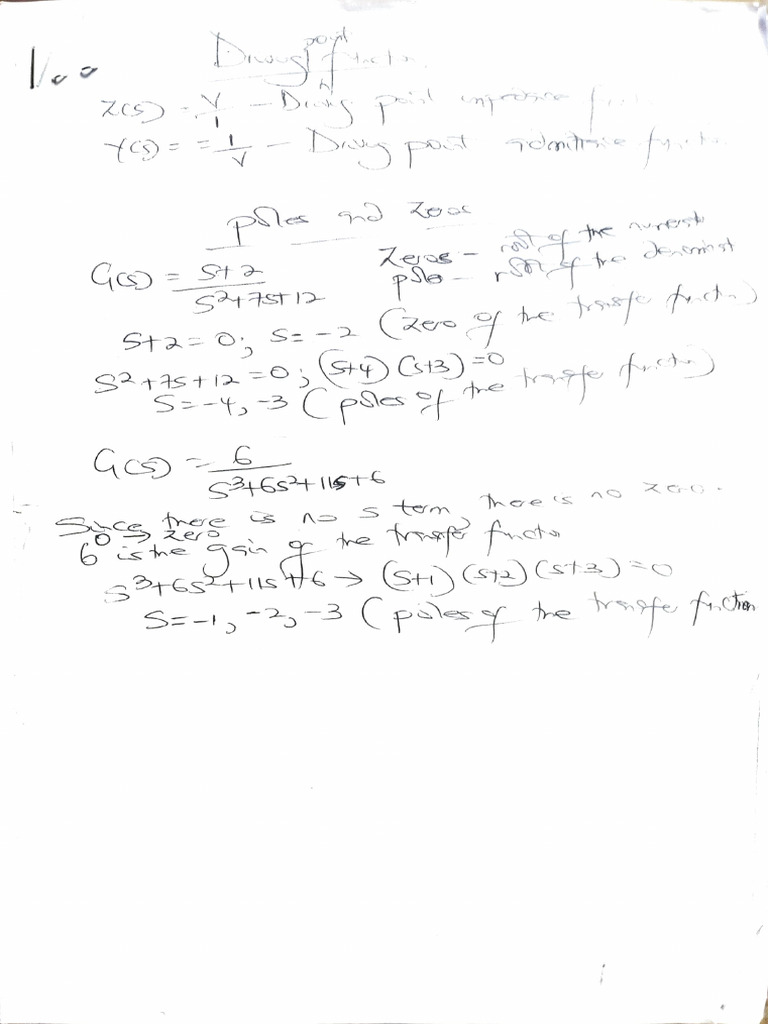 1.00
Driving point function
Z(s) = V/I - Driving point impedance
Y(s) = = I/V - Driving point admittance function
poles and zeros
G(s) = s+2 / s²+7s+12
Zeros - root of the numerator
pole - root of the denominat
s+2 = 0; s = -2 (zero of the transfe function)
s²+7s+12 = 0; (s+4) (s+3) = 0
s = -4, -3 (poles of the transfe function)
G(s) = 6 / s³+6s²+11s+6
Since there is no s term, there is no zero.
0 → zero
6 is the gain of the transfer function
s³+6s²+11s+6 → (s+1) (s+2) (s+3) = 0
s = -1, -2, -3 (poles of the transfe function